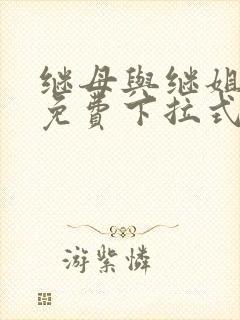 继母與继姐
免費下拉式
游紫憐